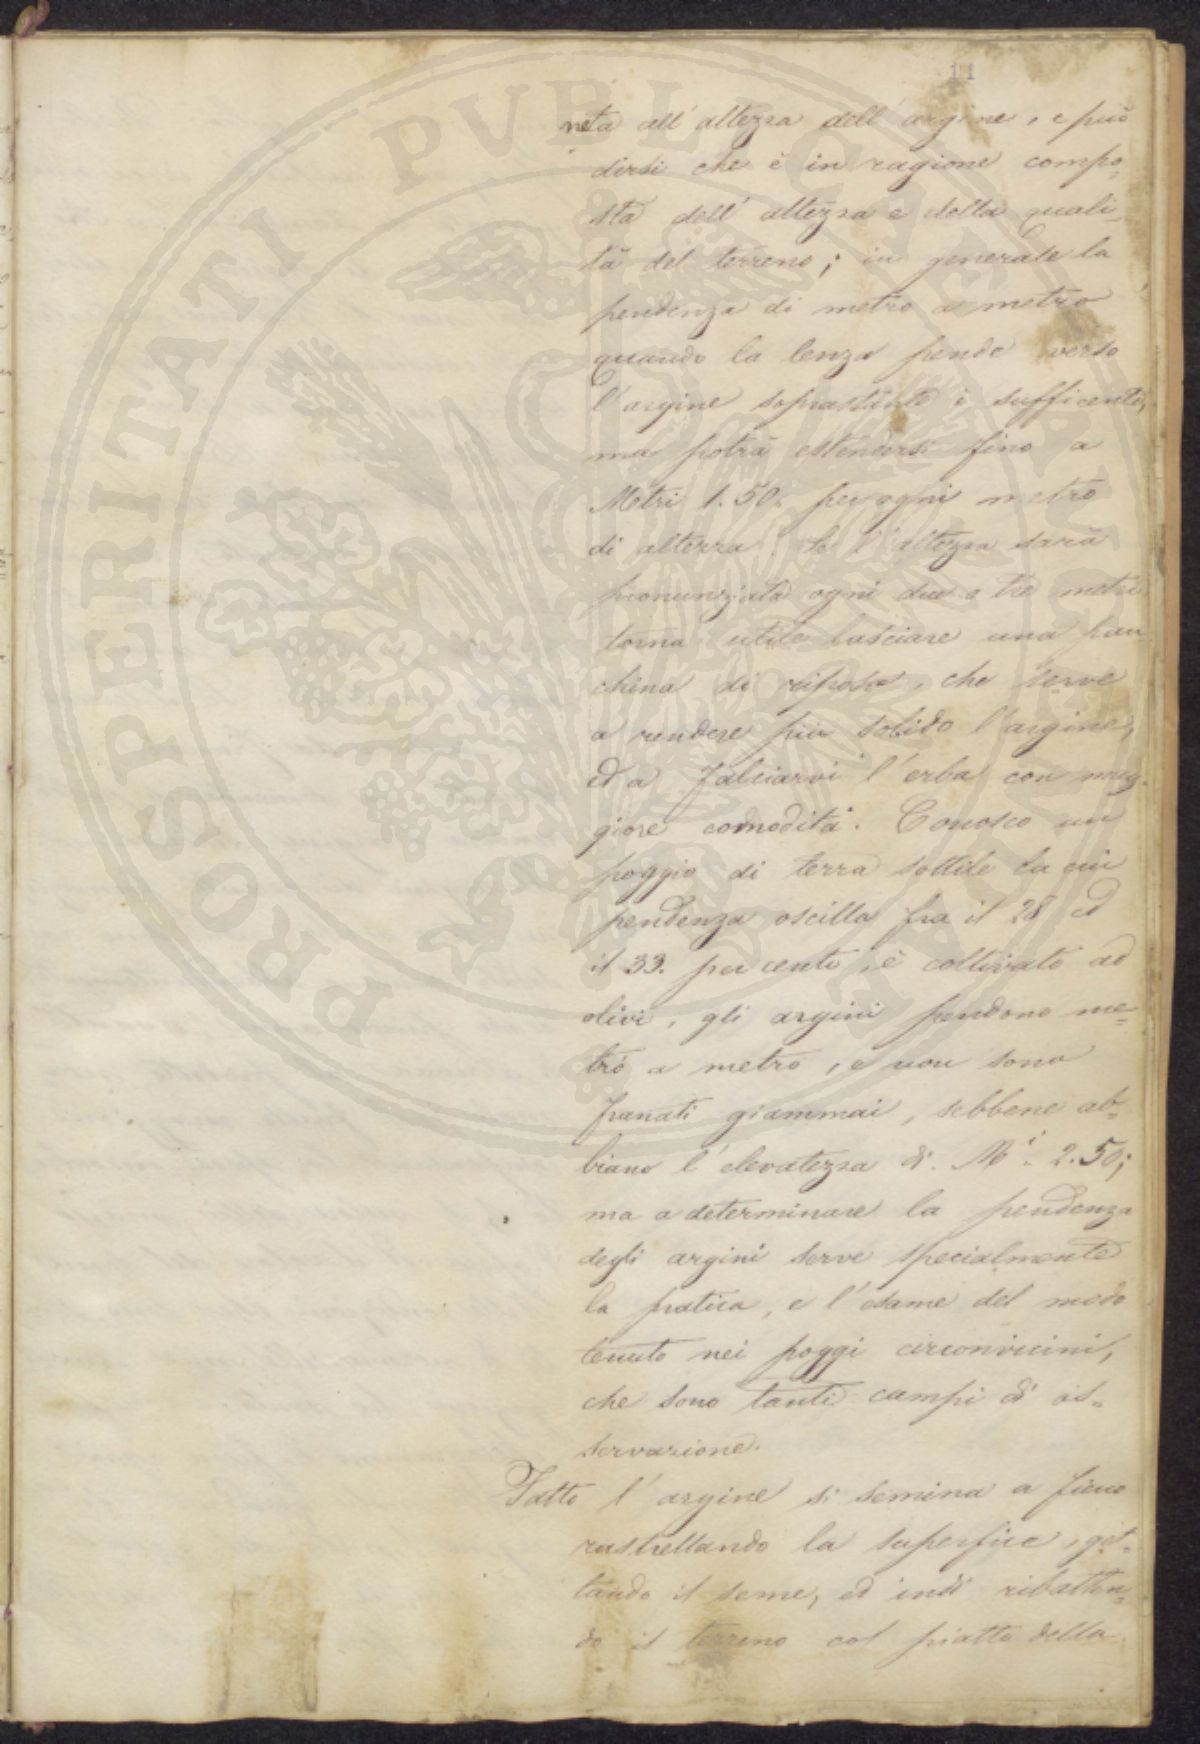 11
PROSPERITATI PVBLICAE AVGENDAE
neta all'altezza dell'argine, e può
dirsi che è in ragione compo=
sta dell'altezza e della quali=
tà del terreno; in generale la
pendenza di metro a metro
quando la lenza pende verso
l'argine soprastante è sufficente,
ma potrà estendersi fino a
Metri 1.50. per ogni metro
di altezza. Se l'altezza sarà
pronunziata ogni due o tre metri
torna utile lasciare una pan
china di riposo, che serve
a rendere più solido l'argine,
ed a falciarvi l'erba con mag=
giore comodità. Conosco un
poggio di terra sottile la cui
pendenza oscilla fra il 28 ed
il 33. per cento, è coltivato ad
olivi, gli argini pendono me=
tro a metro, e non sono
franati giammai, sebbene ab=
biano l'elevatezza di Mi. 2.50;
ma a determinare la pendenza
degli argini serve specialmente
la pratica, e l'esame del modo
tenuto nei poggi circonvicini,
che sono tanti campi di os=
servazione.
Fatto l'argine si semina a fieno
rastrellando la superfice, get=
tando il seme, ed indi ribatten=
do il terreno col piatto della